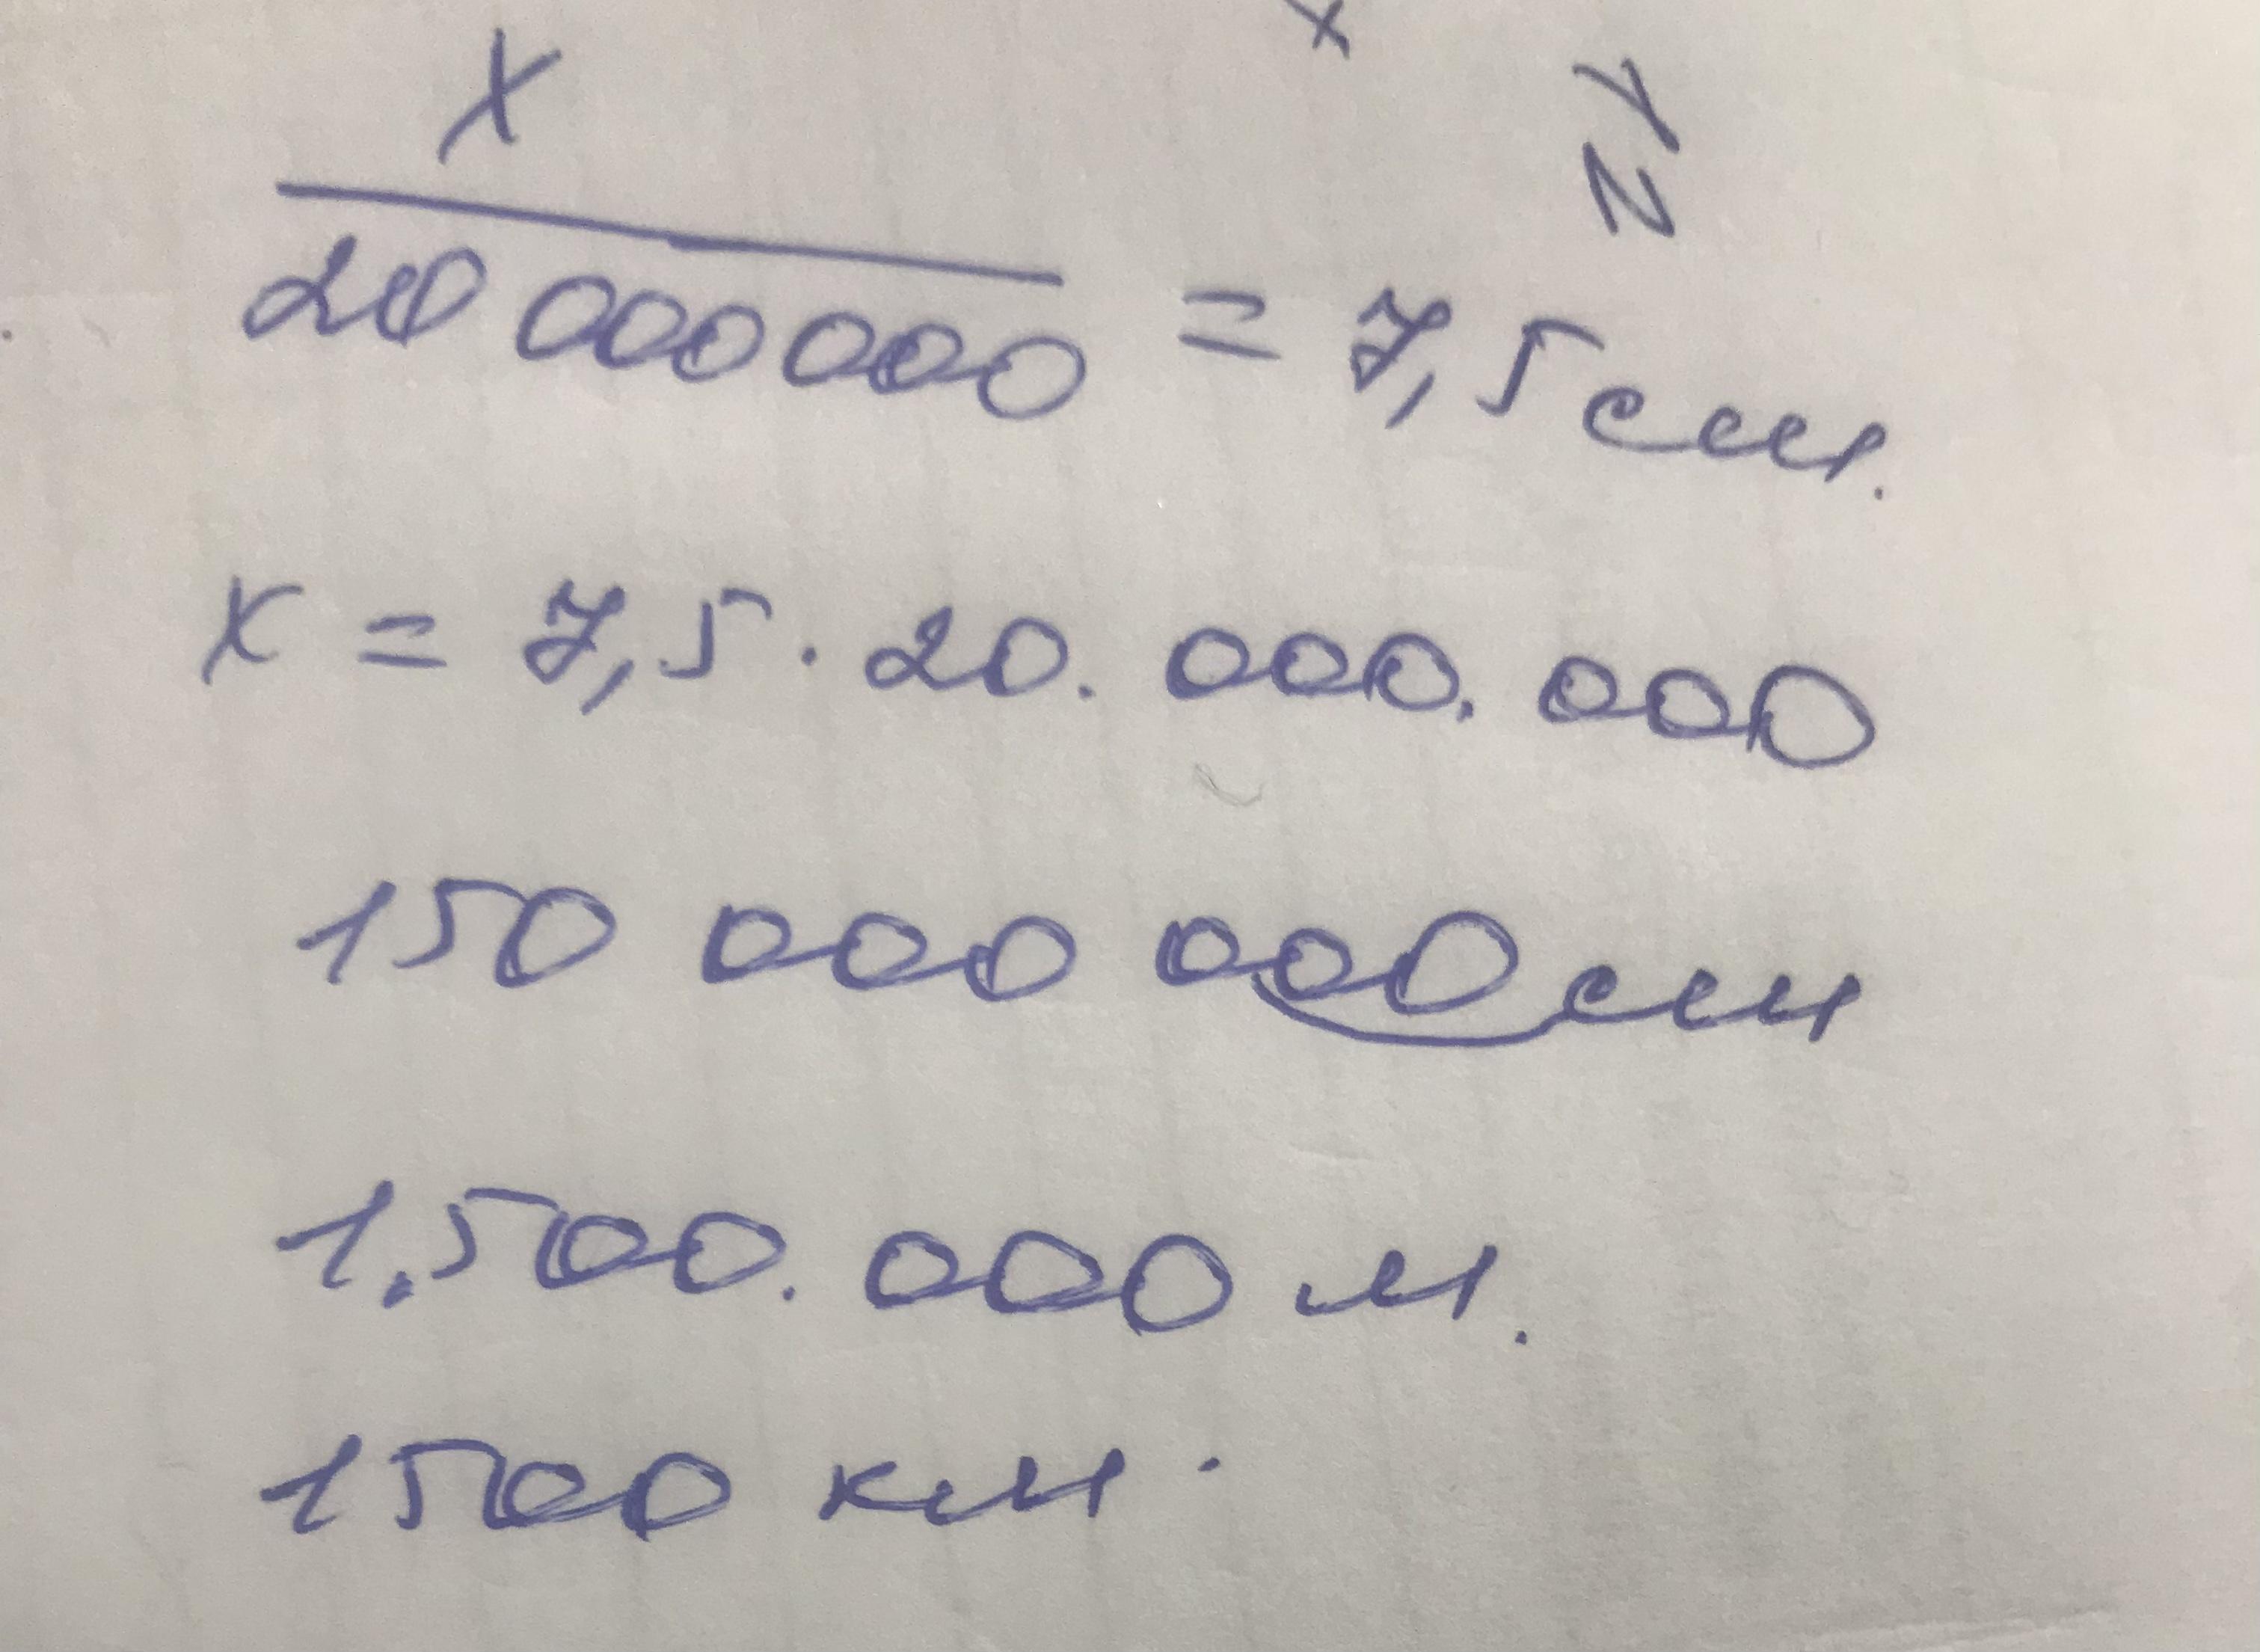 x
Y
N
X
20 000000 = 7,5 см.
x = 7,5 · 20. 000. 000
150 000 000 см
1.500. 000 м.
1500 км.